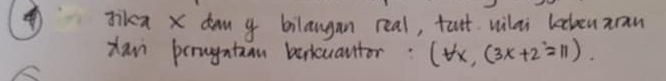 ④ Jika x dan y bilangan real, tent. nilai kebenaran
dari pernyataan berkuantor : (∀x, (3x+2=11).